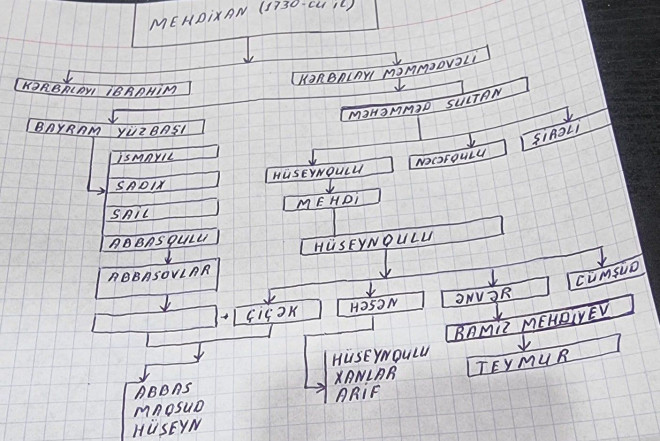 MEHDİXAN (1730-CU İL)
KƏRBALAYI İBRAHİM
KƏRBALAYI MƏMMƏDVƏLİ
BAYRAM YÜZBAŞI
MƏHƏMMƏD SULTAN
İSMAYIL
SADIX
SAİL
ABBASQULU
ABBASOVLAR
HÜSEYNQULU
NƏCƏFQULU
ŞIRƏLİ
MEHDİ
HÜSEYNQULU
ÇİÇƏK
HƏSƏN
ƏNVƏR
CÜMŞÜD
RAMİZ MEHDİYEV
TEYMUR
ABBAS
MAQSUD
HÜSEYN
HÜSEYNQULU
XANLAR
ARİF